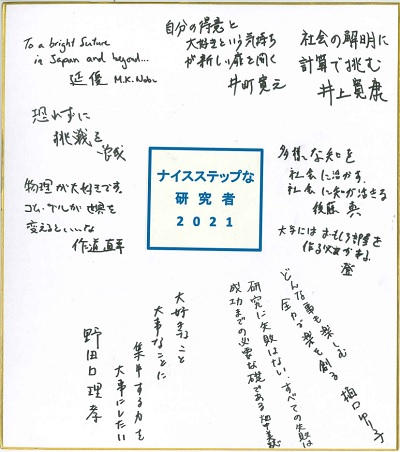 To a bright future
in Japan and beyond...
延優 M.K.Nobu
自分の得意と
大好きという気持ち
が新しい扉を開く
井町寛之
社会の解明に
計算で挑む
井上寛康
恐れずに
挑戦を
ナイスステップな
研究者
2021
多様な知を
社会に活かす。
社会に知が活きる
後藤真
物理が大好きです。
変えるといいな
作道直幸
大学には おもしろ部屋を
作る必要がある。
登
どんな事も楽しむ
全力で楽を創る 樋口ゆり子
研究に失敗はない、すべての失敗は
成功までの必要な礎である 畑中美穂
大好きなこと
大事なことに
集中する力を
大事にしたい
野田口理孝